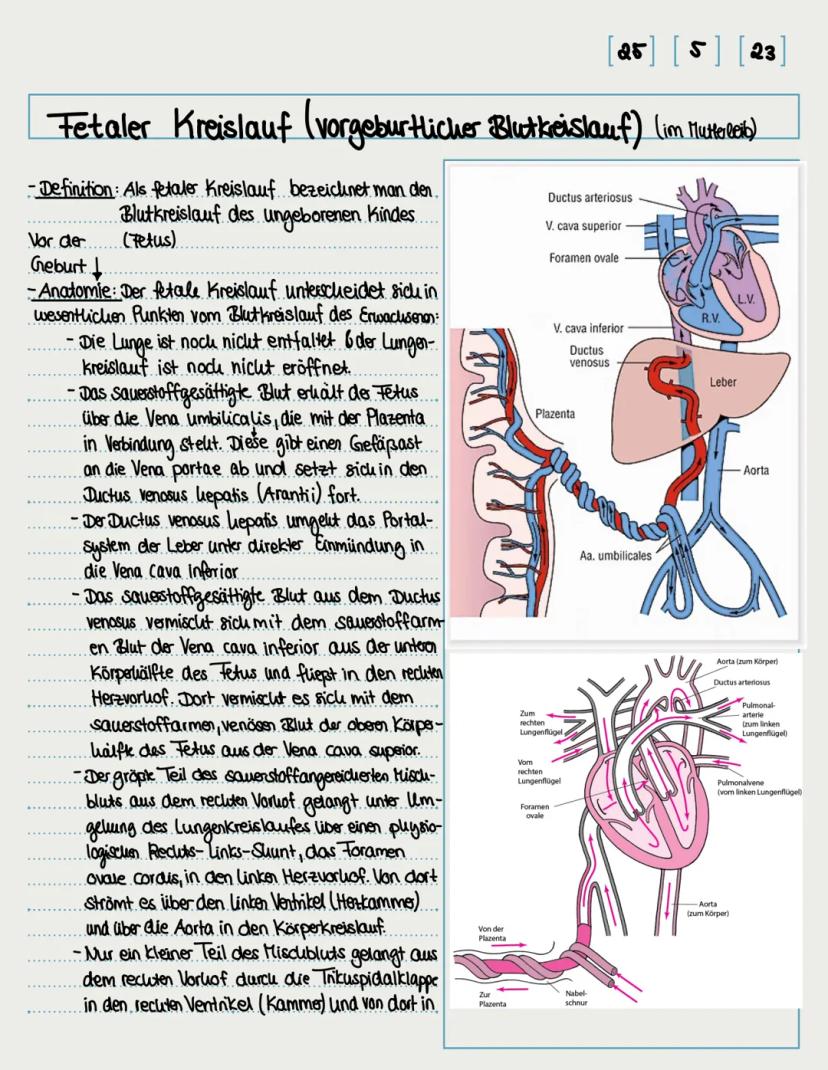 [25] [5] [23]
Fetaler Kreislauf (vorgeburtlicher Blutkreislauf) (im Mutterleib)
- Definition: Als fetaler Kreislauf bezeichnet man den
Blutkreislauf des ungeborenen Kindes
(Fetus)
Vor der
Geburt ↓
- Anatomie: Der fetale Kreislauf unterscheidet sich in
wesentlichen Punkten vom Blutkreislauf des Erwachsenen:
- Die Lunge ist noch nicht entfaltet & der Lungen-
kreislauf ist noch nicht eröffnet.
- Das sauerstoffgesättigte Blut erhält der Fetus
über die Vena umbilicalis, die mit der Plazenta
in Verbindung steht. Diese gibt einen Gefäßast
an die Vena portae ab und setzt sich in den
Ductus venosus hepatis (Arantii) fort.
- Der Ductus venosus hepatis umgeht das Portal-
system der Leber unter direkter Einmündung in
die Vena cava inferior
- Das sauerstoffgesättigte Blut aus dem Ductus
venosus vermischt sich mit dem sauerstoffarm-
en Blut der Vena cava inferior aus der untern
Körperhälfte des Fetus und fließt in den rechten
Herzvorhof. Dort vermischt es sich mit dem
sauerstoffarmen, venösen Blut der oberen Körper-
hälfte des Fetus aus der Vena cava superior.
- Der größte Teil des sauerstoffangereicherten Misch-
bluts aus dem rechten Vorhof gelangt unter Um-
gehung des Lungenkreislaufes über einen physio-
logischen Rechts-Links-Shunt, das Foramen
ovale cordis, in den linken Herzvorhof. Von dort
strömt es über den linken Ventrikel (Herzkammer)
und über die Aorta in den Körperkreislauf.
- Nur ein kleiner Teil des Mischbluts gelangt aus
dem rechten Vorhof durch die Trikuspidalklappe
in den rechten Ventrikel (Kammer) und von dort in
Ductus arteriosus
V. cava superior
Foramen ovale
L.V.
R.V.
V. cava inferior
Ductus
venosus
Leber
Plazenta
Aorta
Aa. umbilicales
Aorta (zum Körper)
Ductus arteriosus
Zum
rechten
Lungenflügel
Pulmonal-
arterie
(zum linken
Lungenflügel)
Vom
rechten
Lungenflügel
Pulmonalvene
(vom linken Lungenflügel)
Foramen
ovale
Aorta
(zum Körper)
Von der
Plazenta
Zur
Plazenta
Nabel-
schnur